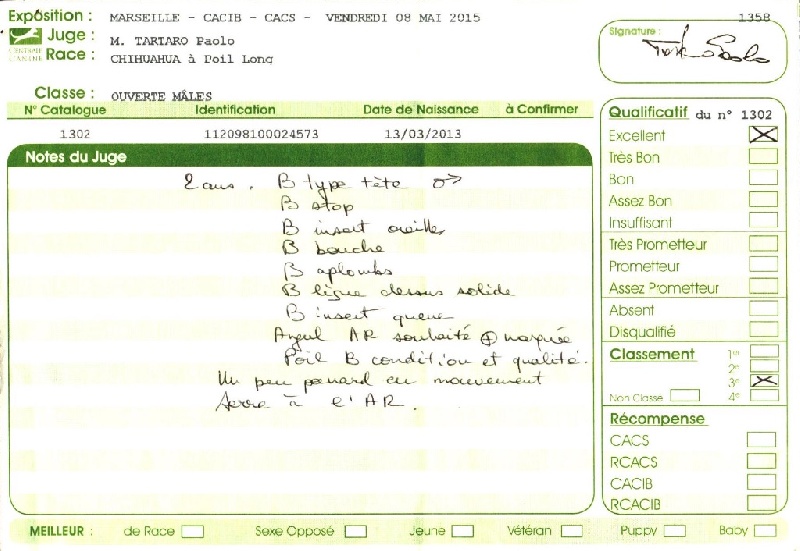 Exposition : MARSEILLE - CACIB - CACS - VENDREDI 08 MAI 2015
1358
Juge : M. TARTARO Paolo
CENTRALE CANINE
Race : CHIHUAHUA à Poil Long
Signature :
Classe : OUVERTE MÂLES
N° Catalogue Identification Date de Naissance à Confirmer
1302 112098100024573 13/03/2013
Notes du Juge
2 ans. B type tête ♂
B stop
B insert oreilles
B bouche
B aplombs
B ligne dessus solide
B insert queue
Angul AR souhaité ⊕ marquée
Poil B condition et qualité.
Un peu panard en mouvement
serre à l'AR.
Qualificatif du n° 1302
Excellent
Très Bon
Bon
Assez Bon
Insuffisant
Très Prometteur
Prometteur
Assez Prometteur
Absent
Disqualifié
Classement 1er
2e
3e
Non Classé 4e
Récompense
CACS
RCACS
CACIB
RCACIB
MEILLEUR : de Race Sexe Opposé Jeune Vétéran Puppy Baby